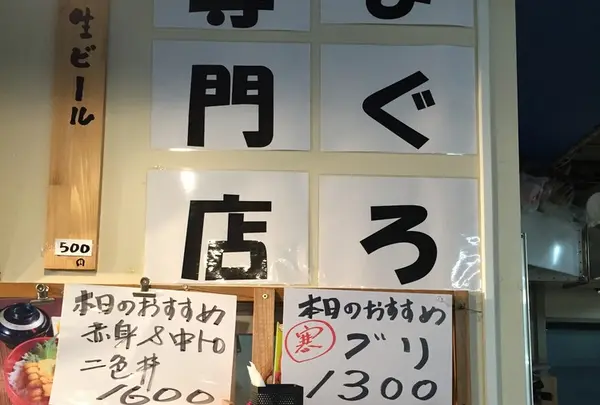 まぐろ
専門店
生ビール
500
円
本日のおすすめ
赤身&中トロ
二色丼
1600
本日のおすすめ
寒
ブリ
1300